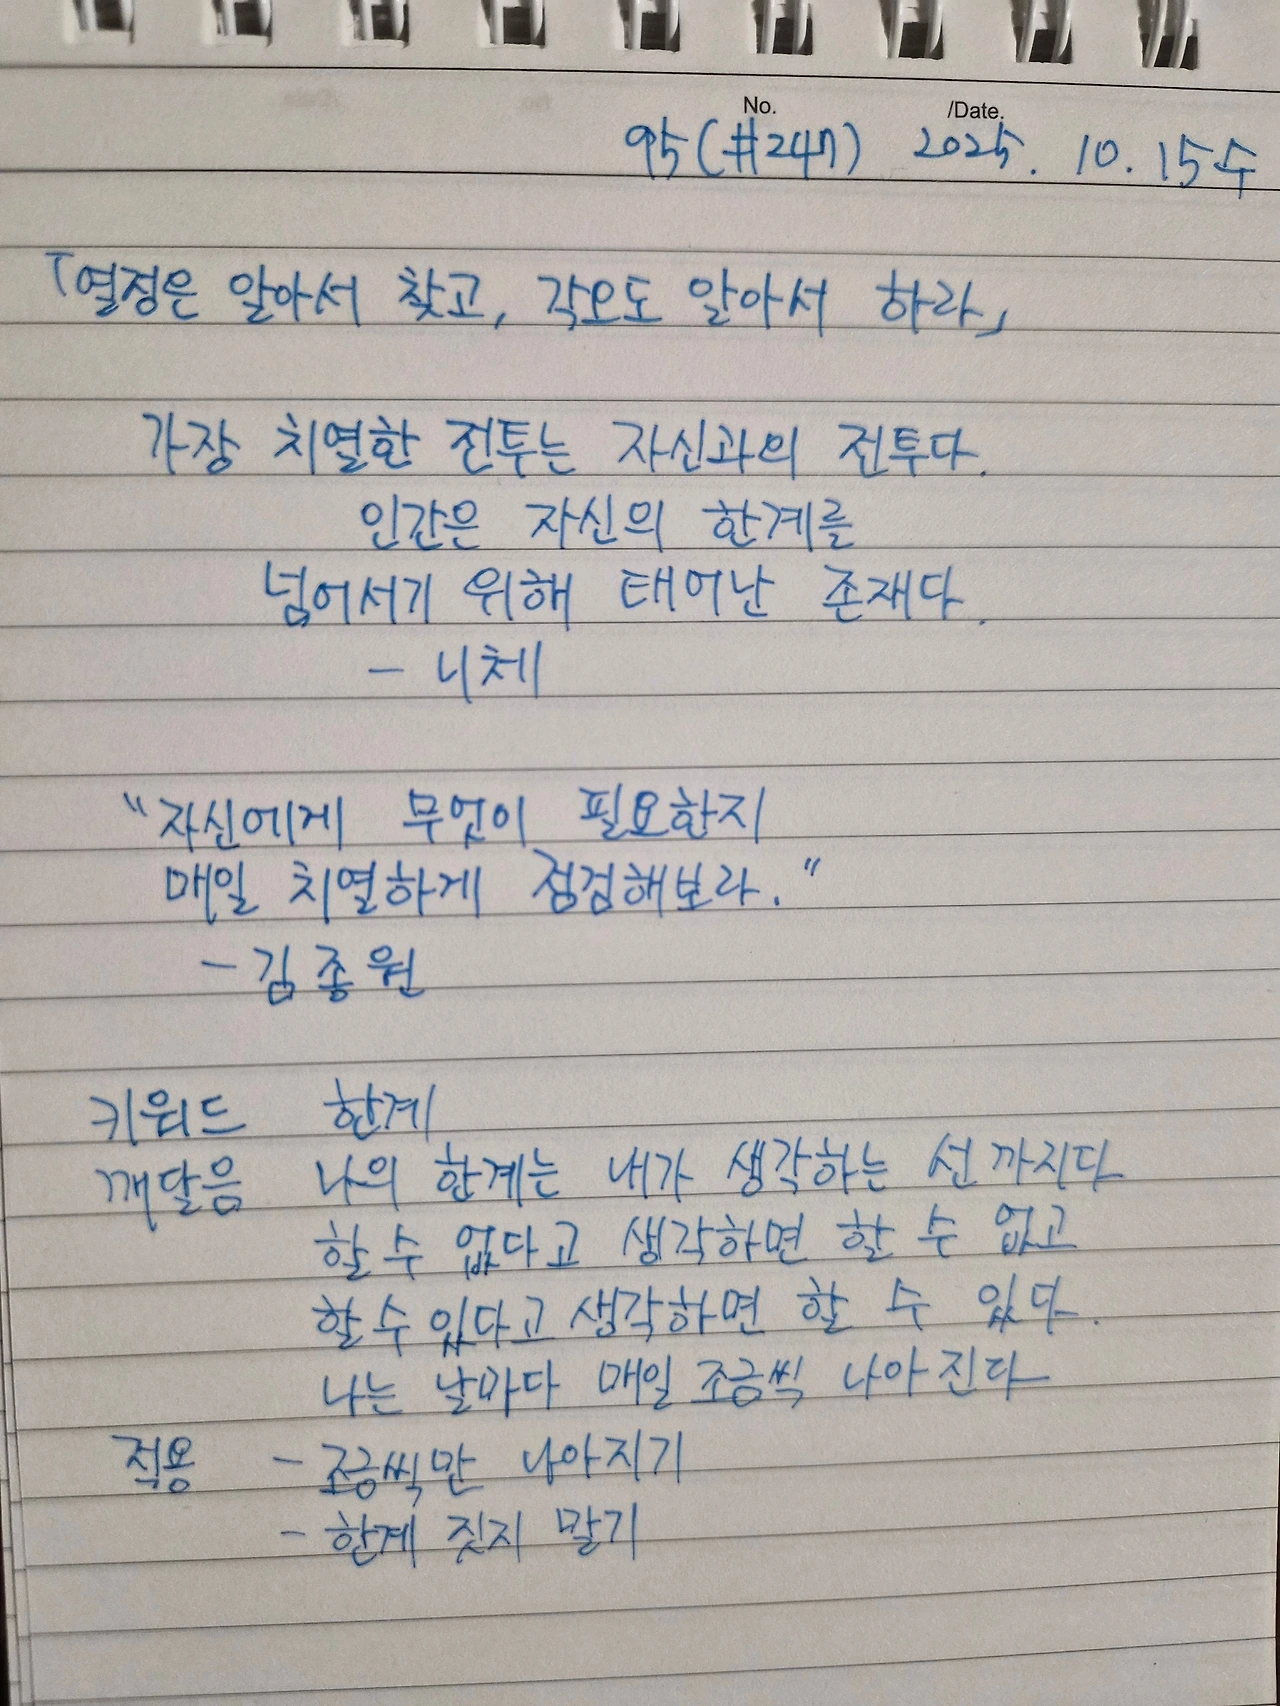 No. /Date.
95(#247) 2025. 10. 15 수
「열정은 알아서 찾고, 각오도 알아서 하라」
가장 치열한 전투는 자신과의 전투다.
인간은 자신의 한계를
넘어서기 위해 태어난 존재다.
- 니체
"자신에게 무엇이 필요한지
매일 치열하게 점검해보라."
- 김종원
키워드 한계
깨달음 나의 한계는 내가 생각하는 선 까지다
할 수 없다고 생각하면 할 수 없고
할 수 있다고 생각하면 할 수 있다.
나는 날마다 매일 조금씩 나아진다
적용 - 조금씩만 나아지기
- 한계 짓지 말기